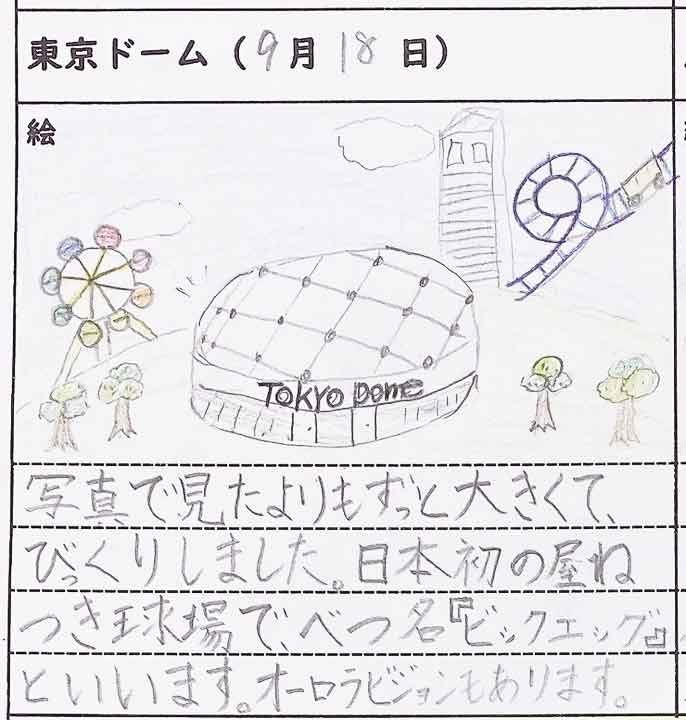 東京ドーム（9月18日）
絵
TOKYO DOME
写真で見たよりもずっと大きくて、
びっくりしました。日本初の屋ね
つき球場で、べつ名『ビックエッグ』
といいます。オーロラビジョンもあります。